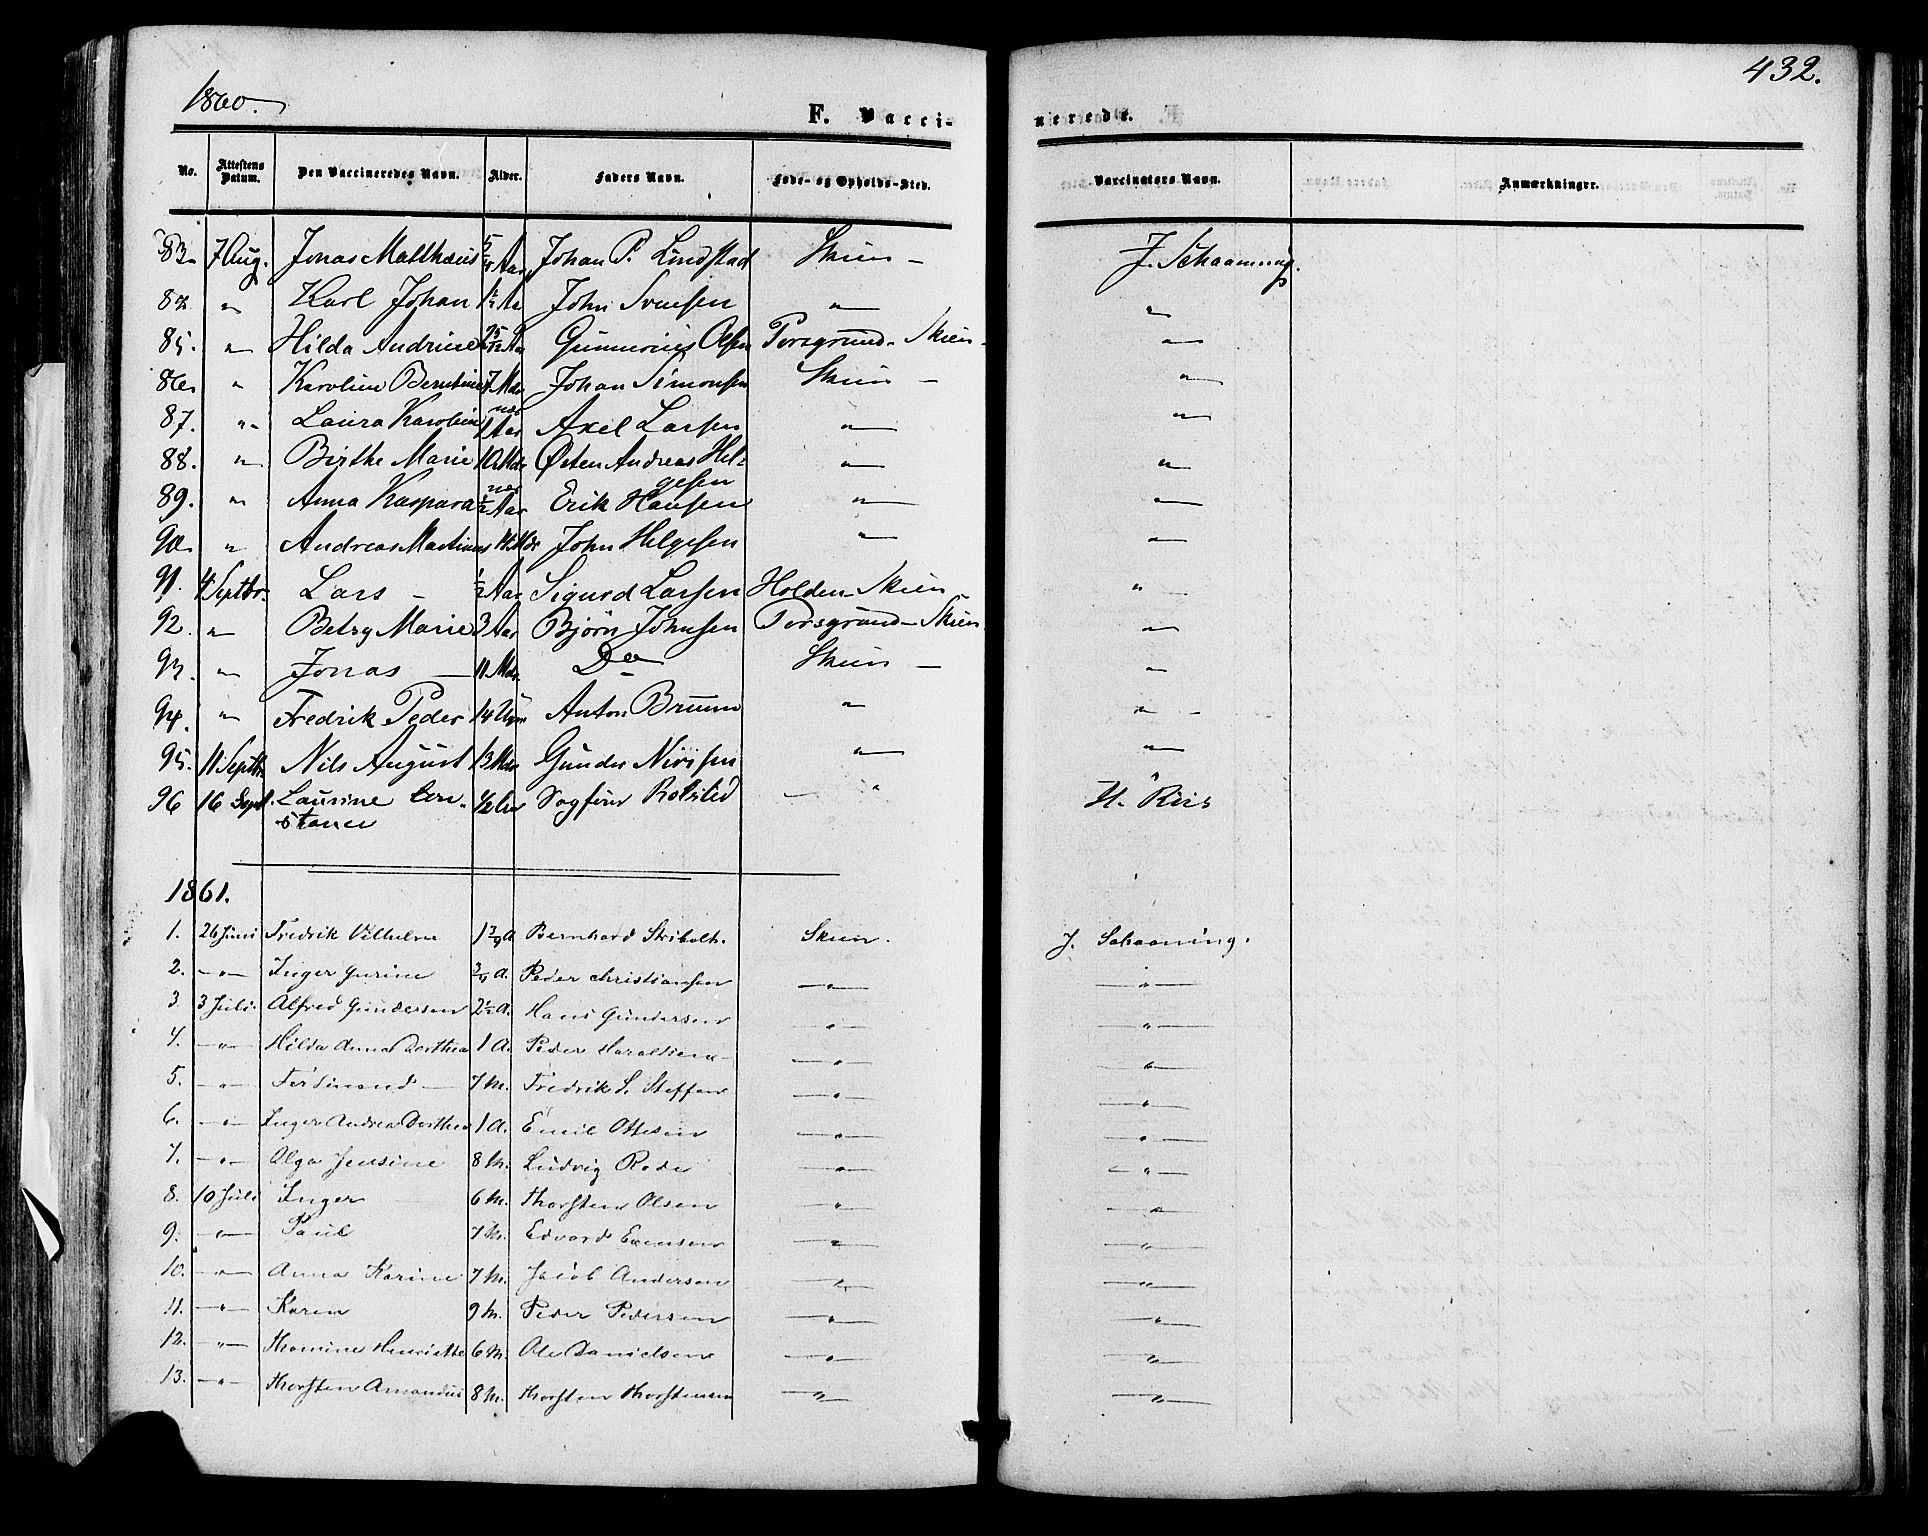 1860.
432.
F. Vacci-
nerede.
No. Attestens Datum. Den Vaccineredes Navn. Alder. Faders Navn. Føde- og Opholds-Sted. Vaccinators Navn. Anmærkninger.
83. 7 Aug. Jonas Matthæus Aar Johan P. Lindstad Skien — J. Schaanning.
84. " Karl Johan 1½ Aa John " "
85. " Hilda Andrine Gunnerius Olsen Porsgrund - Skien - "
86. " Karoline Berntine 7 Mdr Johan Simonsen Skien — "
87. " Laura Karoline 1 Aar Axel Larsen " "
88. " Birthe Marie 10 Mdr Østen Andreas Hel-
gesen " "
89. " Anna Kaspara ½ Aar Erik Hansen " "
90. " Andreas Martinus 14 Mdr John Helgesen " "
91. 4 Septbr. Lars — ½ Aar Sigurd Larsen Holden - Skien "
92. " Betsy Marie 3 Aar Bjørn Johnsen Porsgrund - Skien. "
93. " Jonas — 11 Mdr Do Skien — "
94. " Fredrik Peder 14 Anton Bruun " "
95. 11 Septbr. Nils August 13 Mdr Gunder " "
96 16 Sept. Laurine Con-
stance ½ Aar " H. Riis
1861.
1. 26 Juni Fredrik Vilhelm 1 A Bernhard Stribolt. Skien. J. Schaanning.
2. " Inger Gurine ¾ A. Peder Christiansen " "
3. 3 Juli. Alfred Gundersen 2½ A. Hans Gundersen " "
4. " Hilda Anna Dorthea 1 A. Peder " "
5. " Ferdinand — 7 M. Fredrik S. Steffens " "
6. " Inger Andrea Dorthea 1 A. Emil Ottesen " "
7. " Olga Jensine 8 M. Ludvig Rode " "
8. 10 Juli Inger 6 M. Thorsten Olsen " "
9. " Paul 7 M. Edvard Evensen " "
10. " Anna Karine 7 M. Jacob Andersen " "
11. " Karen 9 M. Peder Pedersen " "
12. " Thomine Henriette 6 M. Ole Danielsen " "
13. " Thorsten Amandus 8 M. Thorsten Thorstensen " "